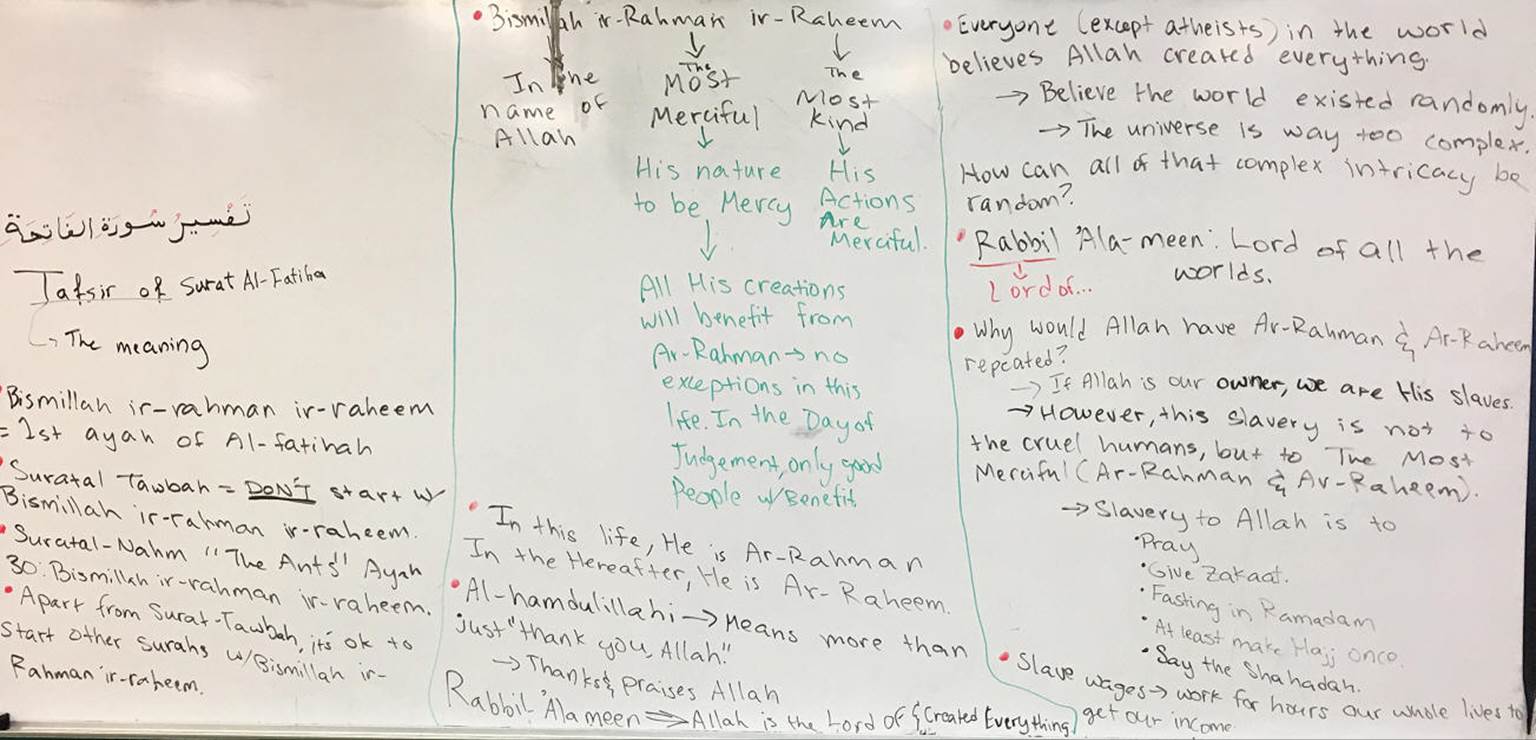 تَفْسِيرُ سُورَةِ الفَاتِحَةِ
Tafsir of Surat Al-Fatiha
→ The meaning
Bismillah ir-rahman ir-raheem
= 1st ayah of Al-fatihah
• Suratal Tawbah = DON'T start w/
Bismillah ir-rahman ir-raheem.
• Suratal-Nahm "The Ants" Ayah
30: Bismillah ir-rahman ir-raheem.
• Apart from Surat-Tawbah, it's ok to
start other surahs w/Bismillah ir-
Rahman ir-raheem.
• Bismillah ir-Rahman ir-Raheem
↓ ↓ ↓
In the name of Allah
The Most Merciful
↓
His nature
to be Mercy
↓
All His creations
will benefit from
Ar-Rahman → no
exceptions in this
life. In the Day of
Judgement, only good
People w/Benefit
The Most Kind
↓
His
Actions
Are
Merciful.
• In this life, He is Ar-Rahman
In the Hereafter, He is Ar-Raheem.
• Al-hamdulillahi → Means more than
just "thank you, Allah."
→ Thanks & praises Allah
Rabbil-'Alameen ⇒ Allah is the Lord of & Created Everything
• Everyone (except atheists) in the world
believes Allah created everything.
→ Believe the world existed randomly.
→ The universe is way too complex.
How can all of that complex intricacy be
random?
• Rabbil 'Ala-meen: Lord of all the
worlds.
↓
Lord of...
• Why would Allah have Ar-Rahman & Ar-Raheem
repeated?
→ If Allah is our owner, we are His slaves.
→ However, this slavery is not to
the cruel humans, but to The Most
Merciful (Ar-Rahman & Ar-Raheem).
→ Slavery to Allah is to
• Pray
• Give Zakaat.
• Fasting in Ramadam
• At least make Hajj once.
• Say the Shahadah.
• Slave wages → work for hours our whole lives to
get our income